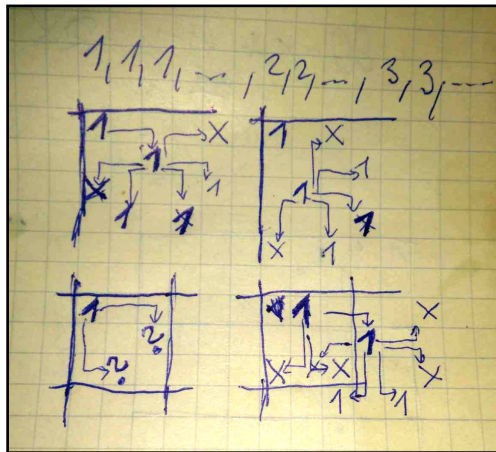 1,1,1,...,2,2,...,3,3,....
1 X 1 X
1 1
X 1 1 1
1 1 X 1
1 ? 1 X
? 1
X X X X
1 1